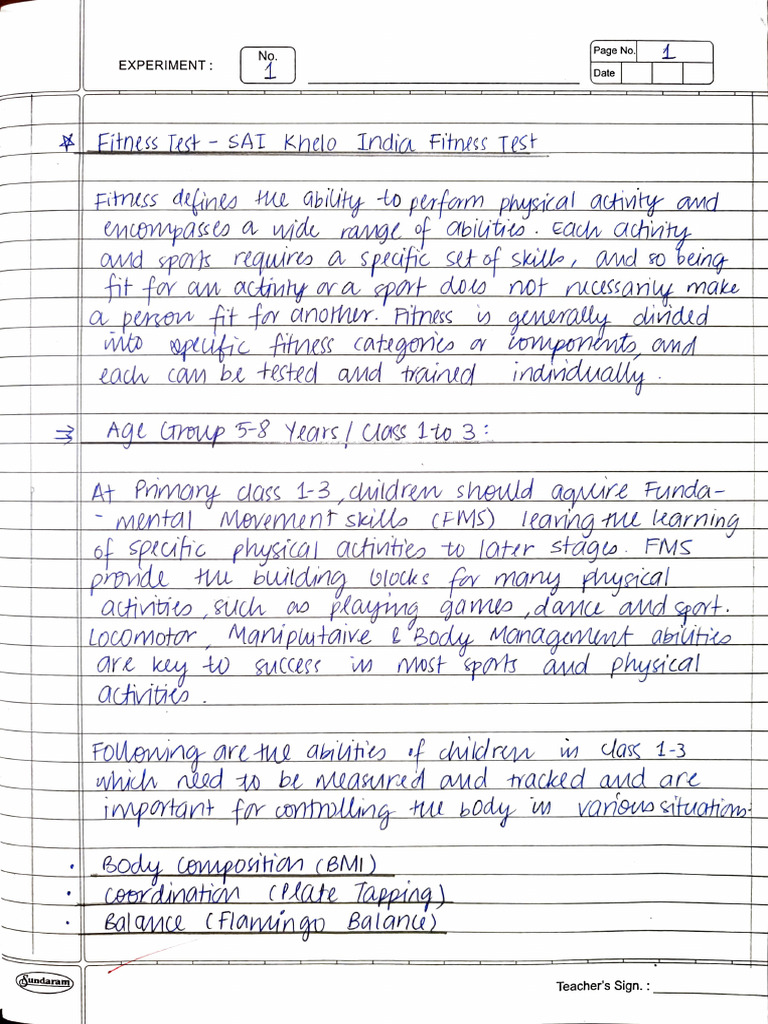 EXPERIMENT :
No.
1
Page No. 1
Date
☆ Fitness Test - SAI Khelo India Fitness Test
Fitness defines the ability to perform physical activity and
encompasses a wide range of abilities. Each activity
and sports requires a specific set of skills, and so being
fit for an activity or a sport does not necessarily make
a person fit for another. Fitness is generally divided
into specific fitness categories or components, and
each can be tested and trained individually.
⇒ Age Group 5-8 Years / Class 1 to 3 :
At Primary class 1-3, children should aquire Funda-
- mental Movement skills (FMS) leaving the learning
of specific physical activities to later stages. FMS
provide the building blocks for many physical
activities, such as playing games, dance and sport.
Locomotor, Maniplutaive & Body Management abilities
are key to success in most sports and physical
activities.
Following are the abilities of children in class 1-3
which need to be measured and tracked and are
important for controlling the body in various situations.
• Body Composition (BMI)
• Coordination (Plate Tapping)
• Balance (Flamingo Balance)
Sundaram
Teacher's Sign. :